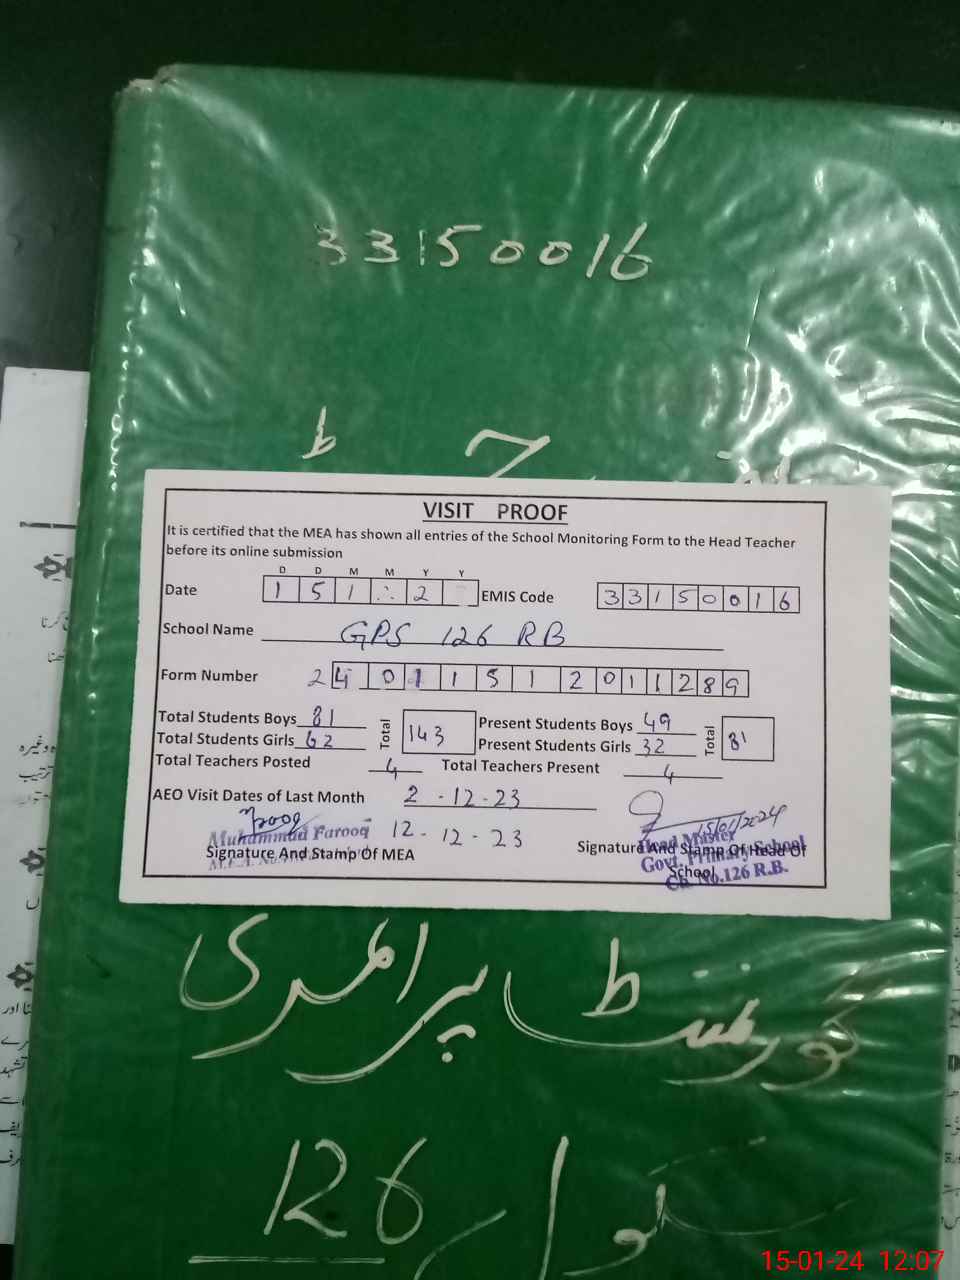 33150016
VISIT PROOF
It is certified that the MEA has shown all entries of the School Monitoring Form to the Head Teacher
before its online submission
D D M M Y Y
Date 1 5 1 2 EMIS Code 3 3 1 5 0 0 1 6
School Name GPS 126 RB
Form Number 2 4 0 1 1 5 1 2 0 1 1 2 8 9
Total Students Boys 81 Total 143 Present Students Boys 49 Total 81
Total Students Girls 62 Present Students Girls 32
Total Teachers Posted 4 Total Teachers Present 4
AEO Visit Dates of Last Month 2-12-23
12-12-23
15/01/2024
Muhammad Farooq
Signature And Stamp Of MEA
Head Master
Govt. Primary School
Ch. No.126 R.B.
Signature And Stamp Of Head Of
School
گورنمنٹ پرائمری
سکول 126
15-01-24 12:07